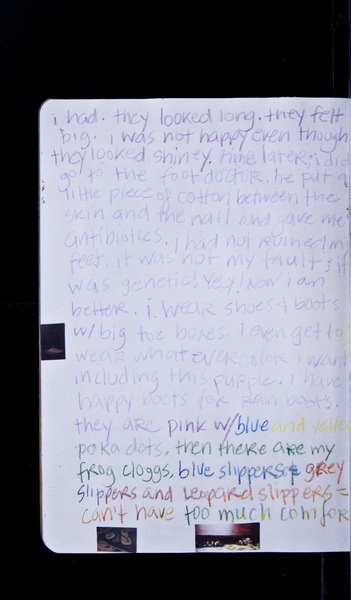 i had. they looked long. they felt
big. i was not happy even though
they looked shiney. time later i did
go to the foot doctur. he put a
little piece of cotton between the
skin and the nail and gave me
antibiotics. i had not ruined my
feet. it was not my fault; it
was genetic! Yey! Now i am
better. i wear shoes & boots
w/big toe boxes. I even get to
wear what ever color i want
including this purple. I have
happy boots for rain boots.
they are pink w/blue and yellow
poka dots. then there are my
frog cloggs, blue slippers & grey
slippers and leopard slippers =
can't have too much comfor